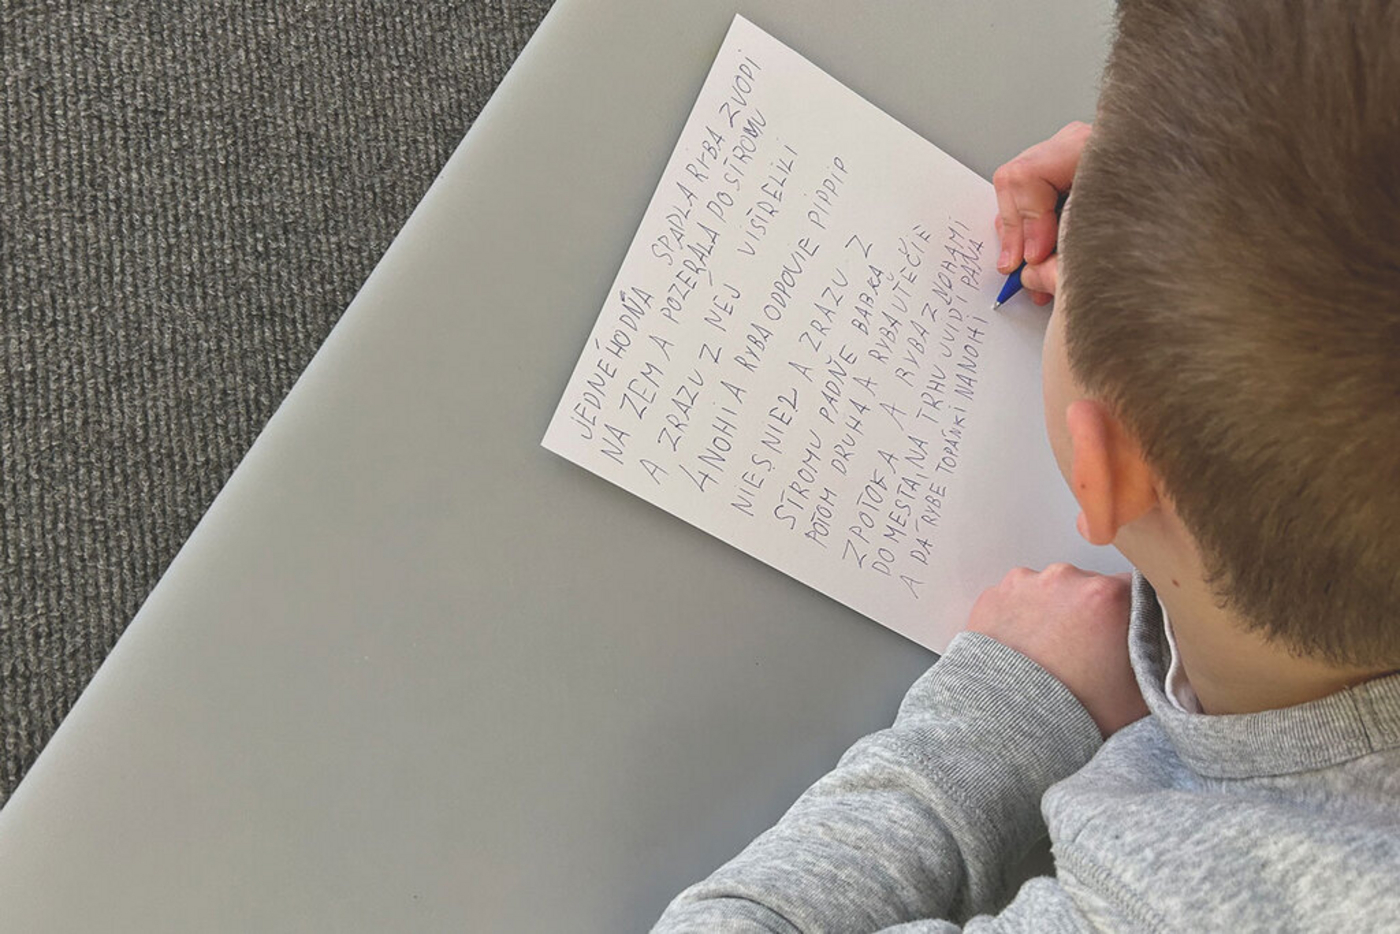 JEDNÉHODŇA SPADLA RYBA ZVODI
NA ZEM A POZERALA PO STROMU
A ZRAZU Z NEJ VISTRELILI
4 NOHI A RYBA ODPOVIE PIPPIP
NIE SNIEŽ A ZRAZU Z
STROMU PADŇE BABKA Z
POTOM DRUHA A RYBA UTEČIE
ZPOTOKA A RYBA Z NOHAMI
DO MESTA NA TRHU UVIDI PAŇA
A DÁ RYBE TOPÁNKI NANOHI